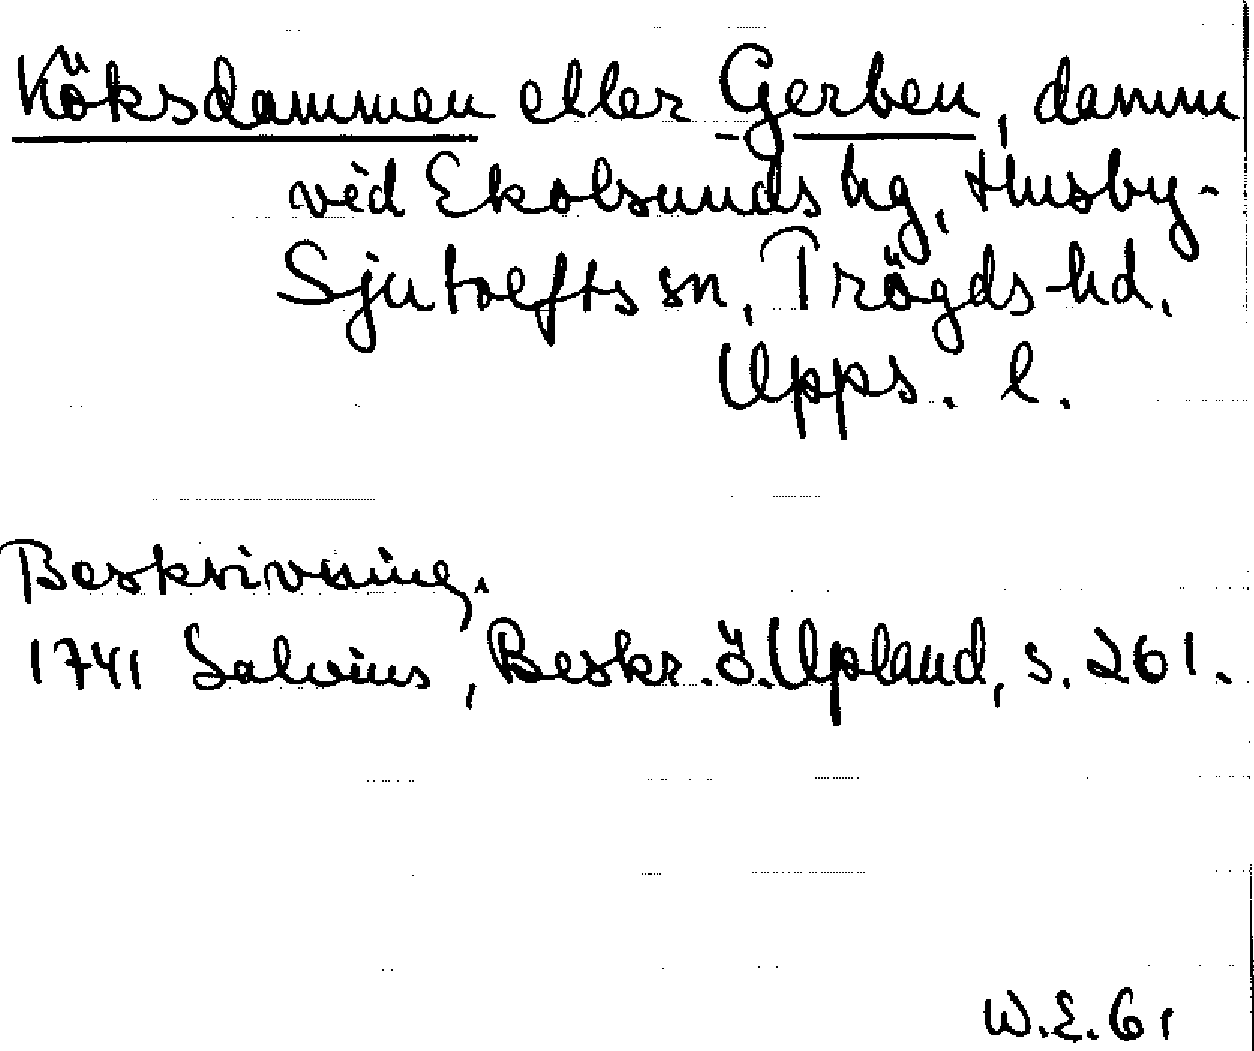 Köksdammen eller Gerben, damm
vid Ekolsunds hg, Husby-
Sjutolfts sn, Trögds hd,
Upps. l.
Beskrivning.
1741 Salvius, Beskr. ö. Upland, s. 261.
W.E. 61